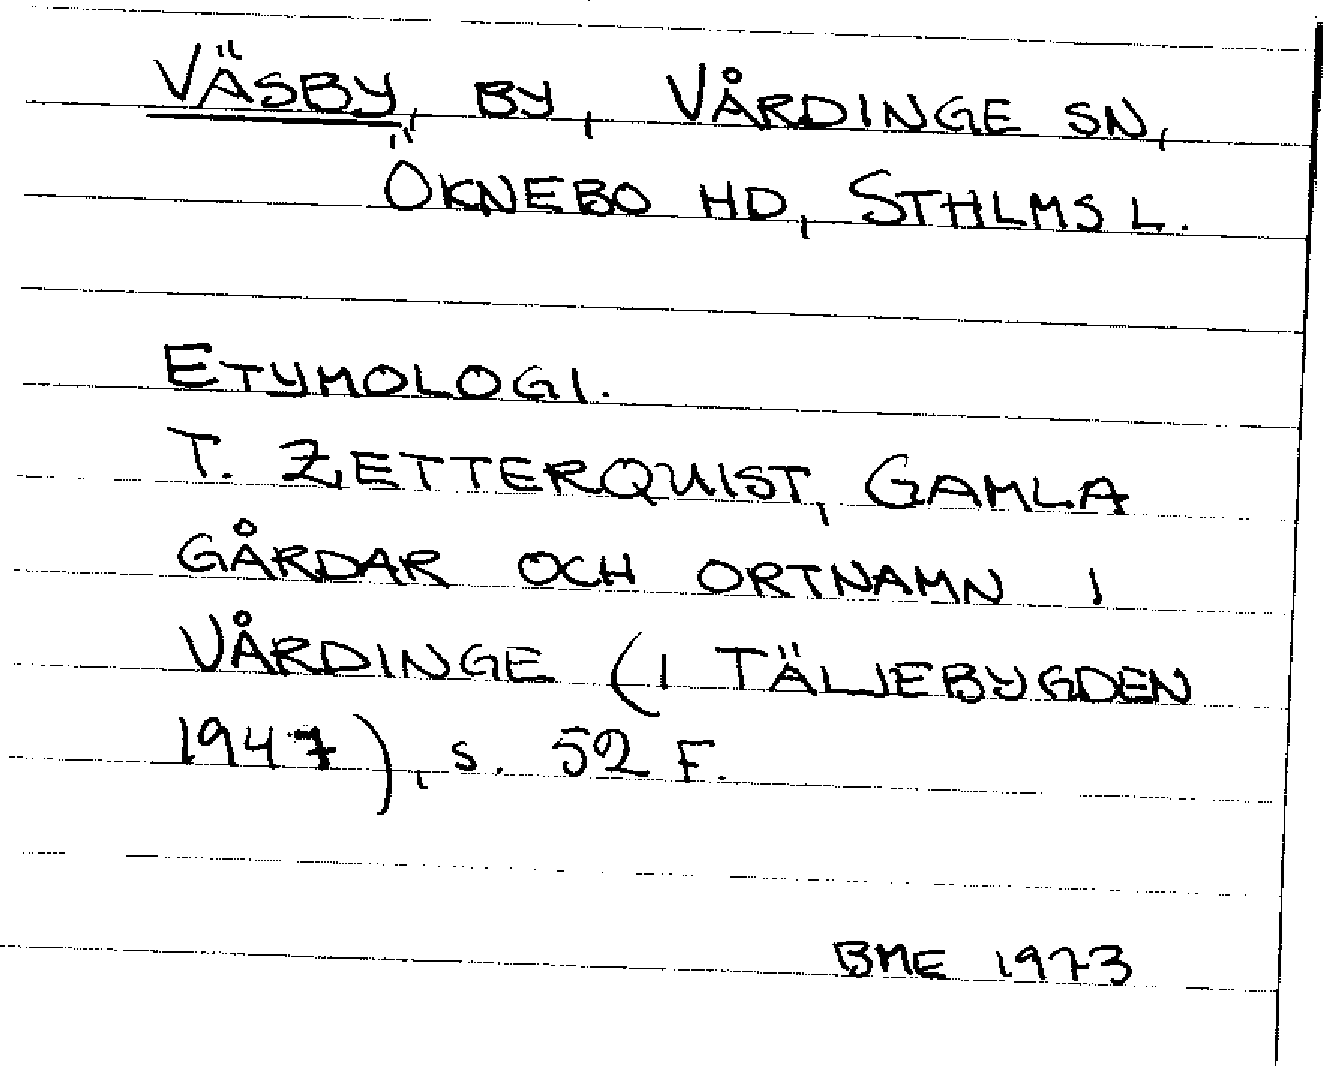 VÄSBY, BY, VÅRDINGE SN,
ÖKNEBO HD, STHLMS L.
ETYMOLOGI.
T. ZETTERQUIST, GAMLA
GÅRDAR OCH ORTNAMN I
VÅRDINGE (I TÄLJEBYGDEN
1947), S. 52 F.
BME 1973